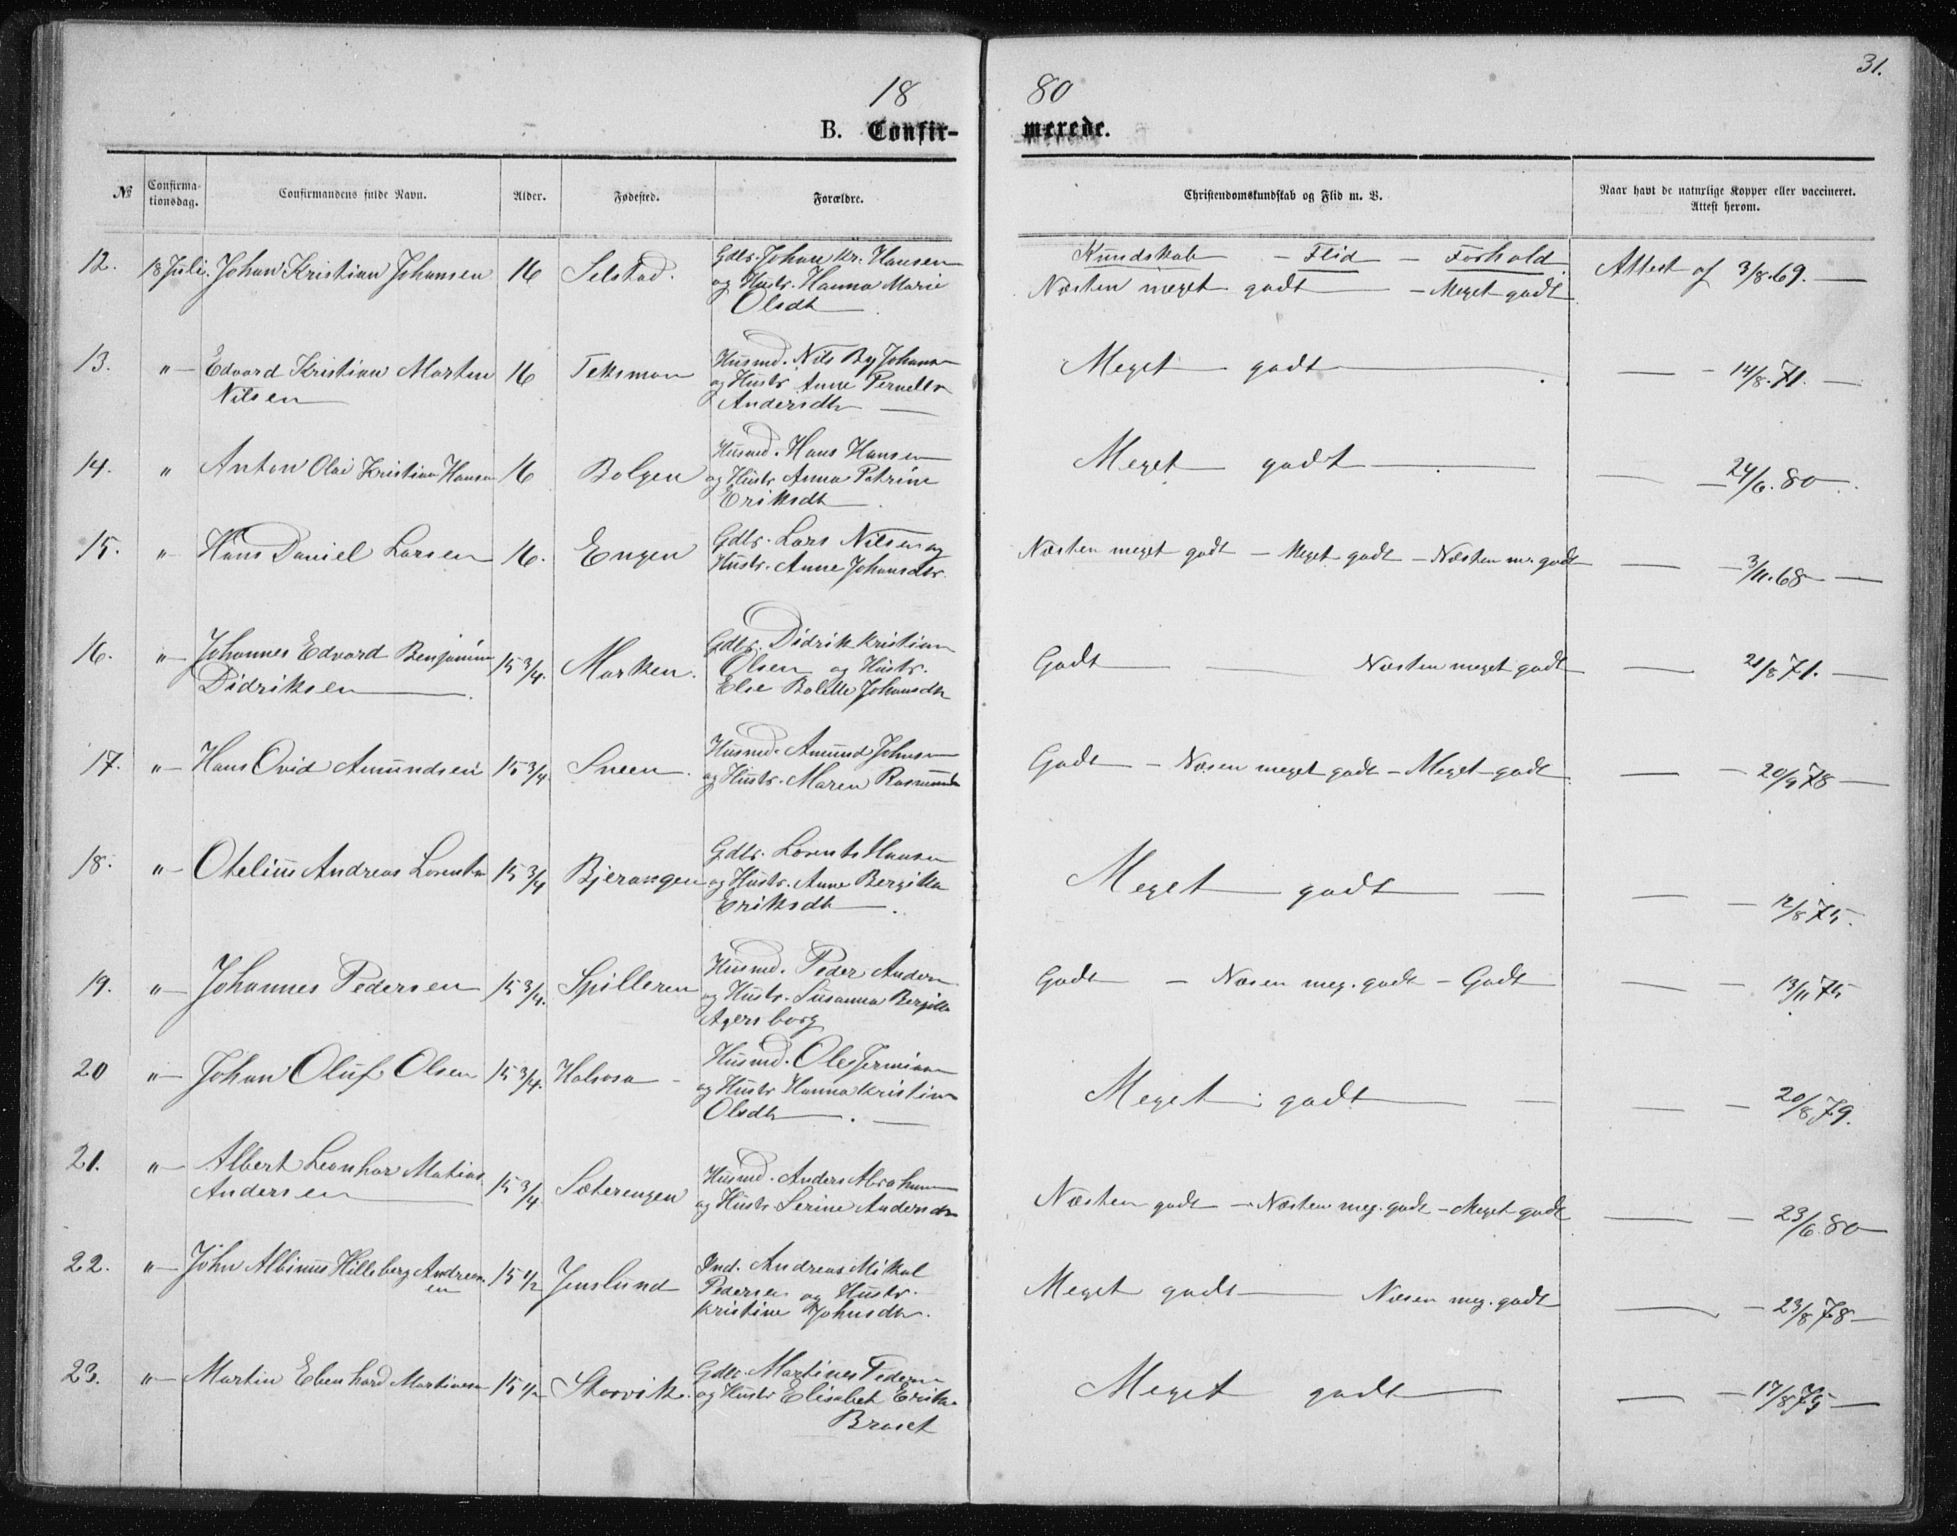 18 80
31.
B. Confirmerede.
№ Confirmationsdag. Confirmandens fulde Navn. Alder. Fødested. Forældre. Christendomskundskab og Flid m. V. Naar havt de naturlige Kopper eller vaccineret. Attest herom.
12. 18 Juli. Johan Kristian Johansen 16 Selstad. Gdbr. Johan Kr. Hansen Kundskab - Flid - Forhold Attest af 3/8.69.
og Hustr. Hanna Marie Næsten meget godt - Meget godt
Olsdtr
13. " Edvard Kristian Martin 16 Teksmon Husmd. Nils By Johans Meget godt 14/8.71.
Nilsen og Hustr Anne Pernella
Andersdtr
14. " Anton Olai Kristian Hansen 16 Bolgen Husmd. Hans Hansen Meget godt 24/6.80
og Hustr Anna Petrine
Eriksdtr
15. " Hans Daniel Larsen 16. Engen Gdbr. Lars Nilsen og Næsten meget godt - Meget godt - Næsten m. godt 3/11.68
Hustr. Anne Johansdtr.
16. " Johannes Edvard Benjamin 15 3/4. Marken. Gdbr. Didrik Kristian Godt Næsten meget godt 21/8 71.
Didriksen Olsen og Hustr.
Else Bolette Johansdtr
17. " Hans Ovid Amundsen 15 3/4 Sneen. Husmd. Amund Johnsen Godt - Næsen meget godt - Meget godt 20/9 78
og Hustr. Maren Rasmusdtr
18. " Otelius Andreas Lorents 15 3/4 Bjerangen Gdbr. Lorents Hansen Meget godt 12/8 75.
og Hustr. Anne Bergitta
Eriksdtr
19. " Johannes Pedersen 15 3/4. Spilleren Husmd. Peder Anders Godt - Næsen meg. godt - Godt 13/11 75
og Hustr. Susanna Bergitta
Agersborg
20 " Johan Oluf Olsen 15 3/4. Halsosa Husmd. Ole Jermias Meget godt 20/8 79.
og Hustr Hanna Kristine
Olsdtr
21. " Albert Leonhar Matias 15 3/4. Sæterengen Husmd. Anders Abraham Næsten godt - Næsten meg. godt - Meget godt 23/6 80
Andersen og Hustr Serine Andersdtr
22. " John Albinus Hilleberg Andreas 15 1/2 Jenslund Ind. Andreas Mikal Meget godt Næsen meg. godt 23/8 78
en Pedersen og Hustr.
Kristine Johnsdtr.
23. " Martin Ebenhard Martinsen 15 1/2 Storvik. Gdbr. Martines Peders Meget godt 17/8 75
og Hustr Elisabet Erika
Braset